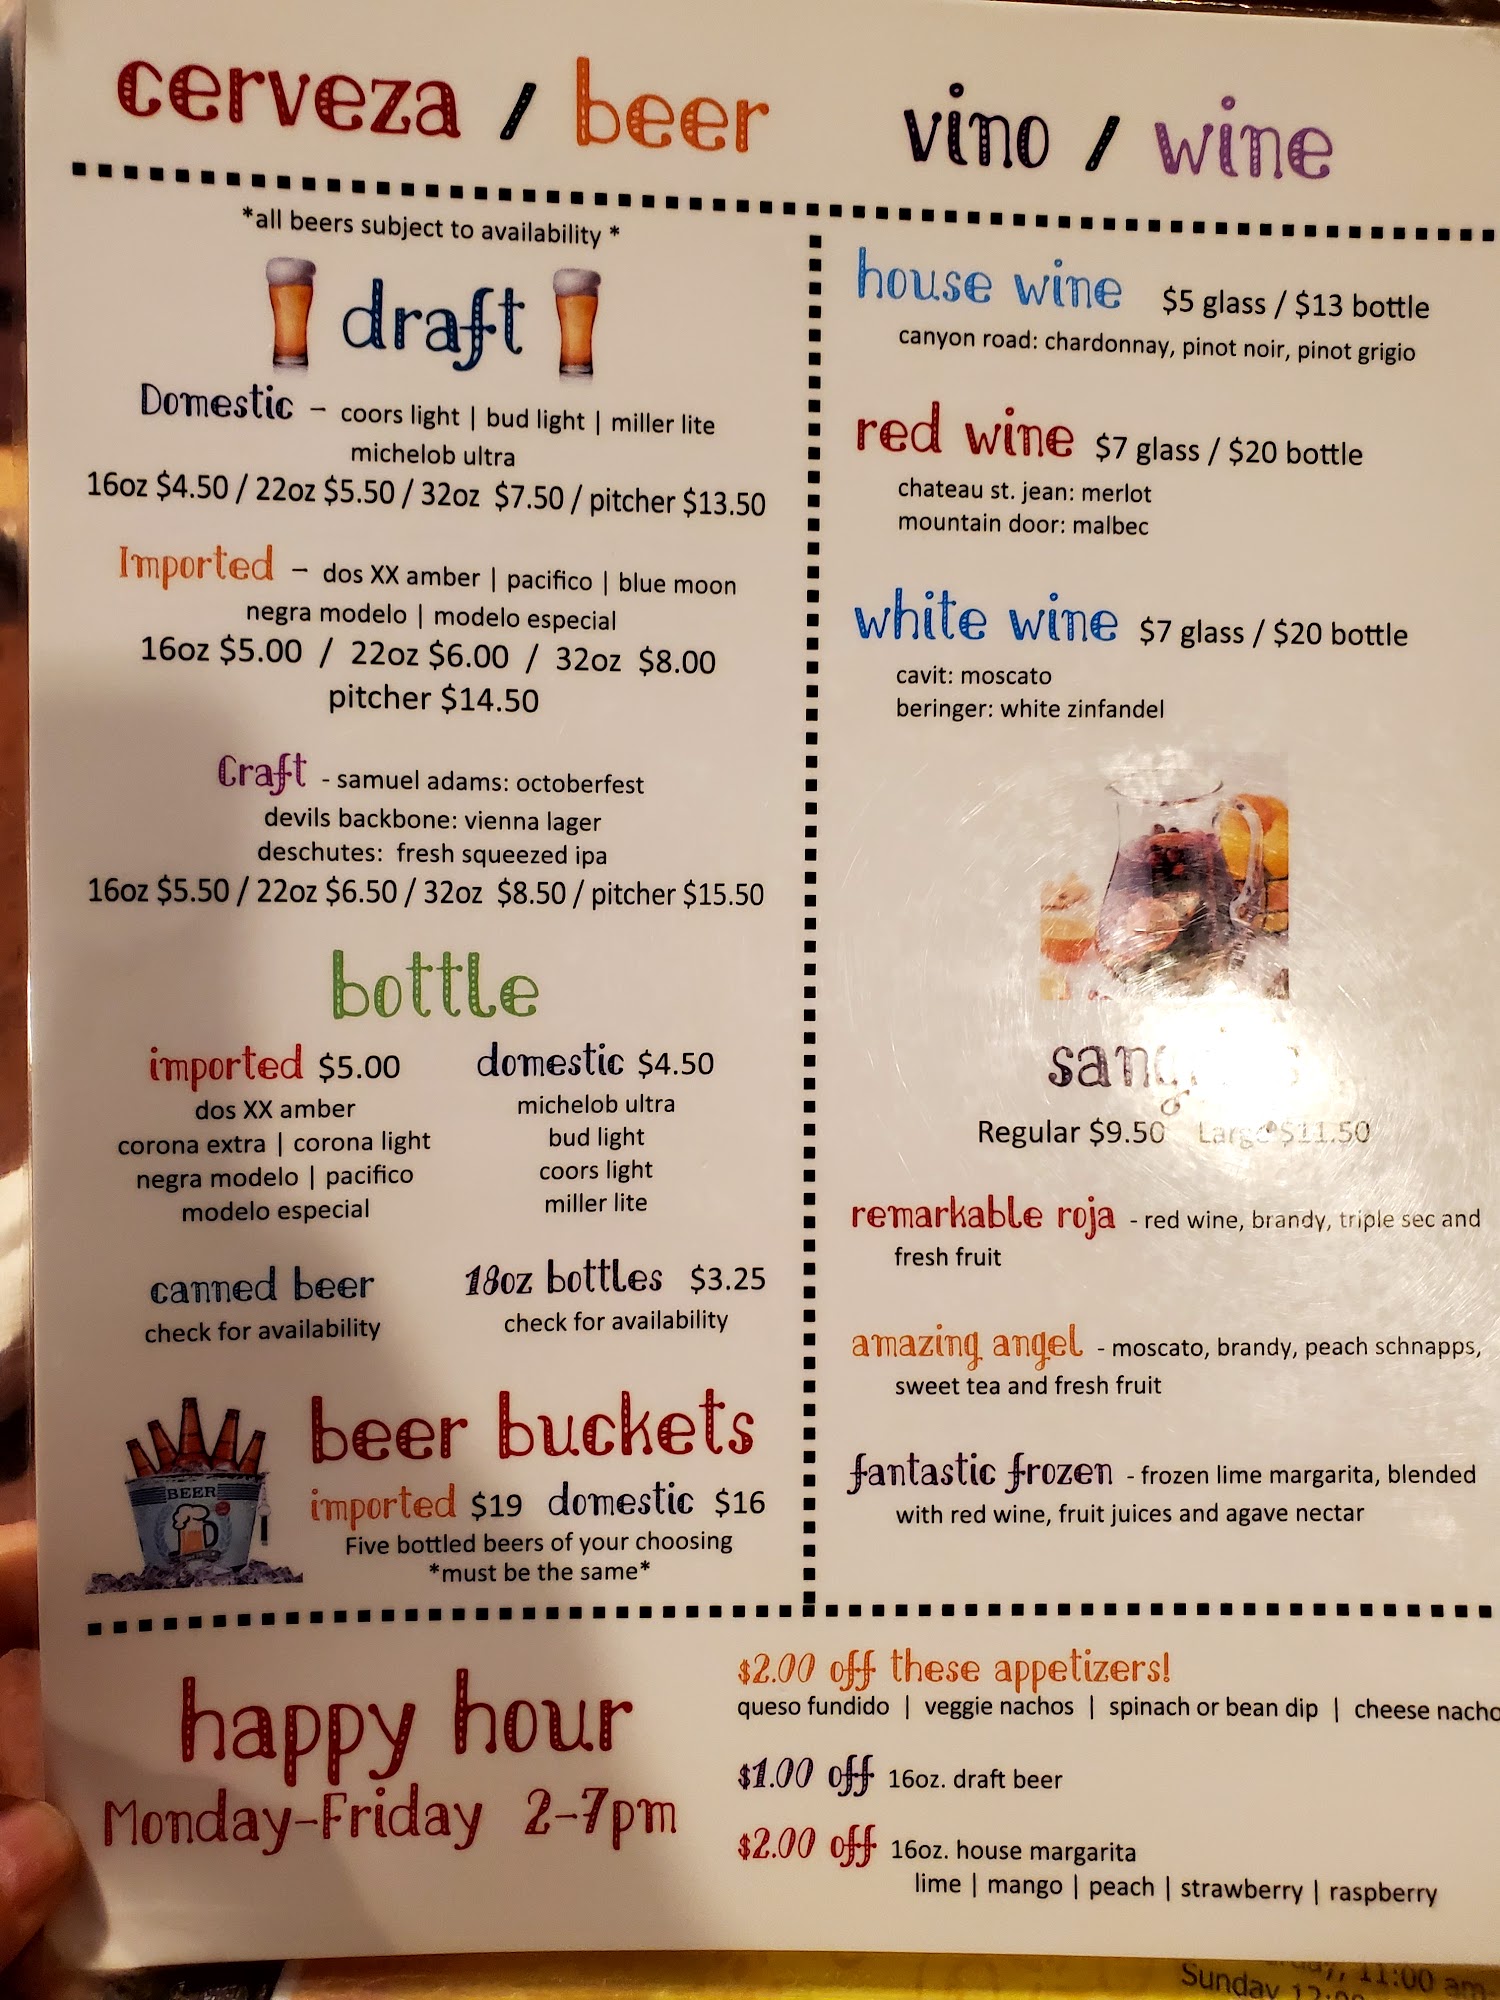 cerveza / beer
*all beers subject to availability *
draft
Domestic – coors light | bud light | miller lite
michelob ultra
16oz $4.50 / 22oz $5.50 / 32oz $7.50 / pitcher $13.50
Imported – dos XX amber | pacifico | blue moon
negra modelo | modelo especial
16oz $5.00 / 22oz $6.00 / 32oz $8.00
pitcher $14.50
Craft - samuel adams: octoberfest
devils backbone: vienna lager
deschutes: fresh squeezed ipa
16oz $5.50 / 22oz $6.50 / 32oz $8.50 / pitcher $15.50
bottle
imported $5.00
dos XX amber
corona extra | corona light
negra modelo | pacifico
modelo especial
domestic $4.50
michelob ultra
bud light
coors light
miller lite
canned beer
check for availability
18oz bottles $3.25
check for availability
beer buckets
BEER
imported $19 domestic $16
Five bottled beers of your choosing
*must be the same*
vino / wine
house wine $5 glass / $13 bottle
canyon road: chardonnay, pinot noir, pinot grigio
red wine $7 glass / $20 bottle
chateau st. jean: merlot
mountain door: malbec
white wine $7 glass / $20 bottle
cavit: moscato
beringer: white zinfandel
Regular $9.50 Large $11.50
remarkable roja - red wine, brandy, triple sec and
fresh fruit
amazing angel - moscato, brandy, peach schnapps,
sweet tea and fresh fruit
fantastic frozen - frozen lime margarita, blended
with red wine, fruit juices and agave nectar
happy hour
Monday-Friday 2-7pm
$2.00 off these appetizers!
queso fundido | veggie nachos | spinach or bean dip | cheese nacho
$1.00 off 16oz. draft beer
$2.00 off 16oz. house margarita
lime | mango | peach | strawberry | raspberry
11:00 am
Sunday